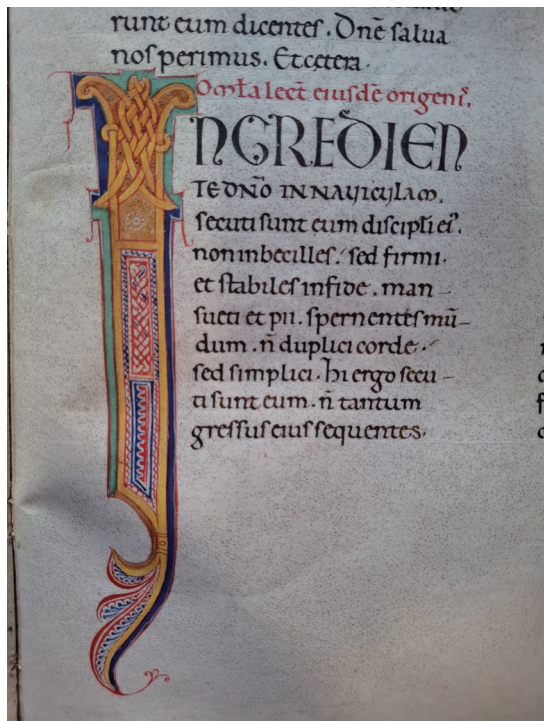 runt eum dicentes. Dn̄e salua
nos perimus. Et cetera.
Om̅ł a lect̄ eiusdē origenis.
INGREDIEN
TE DN̄O IN NAVICVLAM,
secuti sunt eum discipłi ei᾽.
non inbecilles. sed firmi.
et stabiles in fide. man–
sueti et pii. spernentes mū–
dum. n̄ duplici corde.
sed simplici. hi ergo secu–
ti sunt eum. n̄ tantum
gressus eius sequentes.